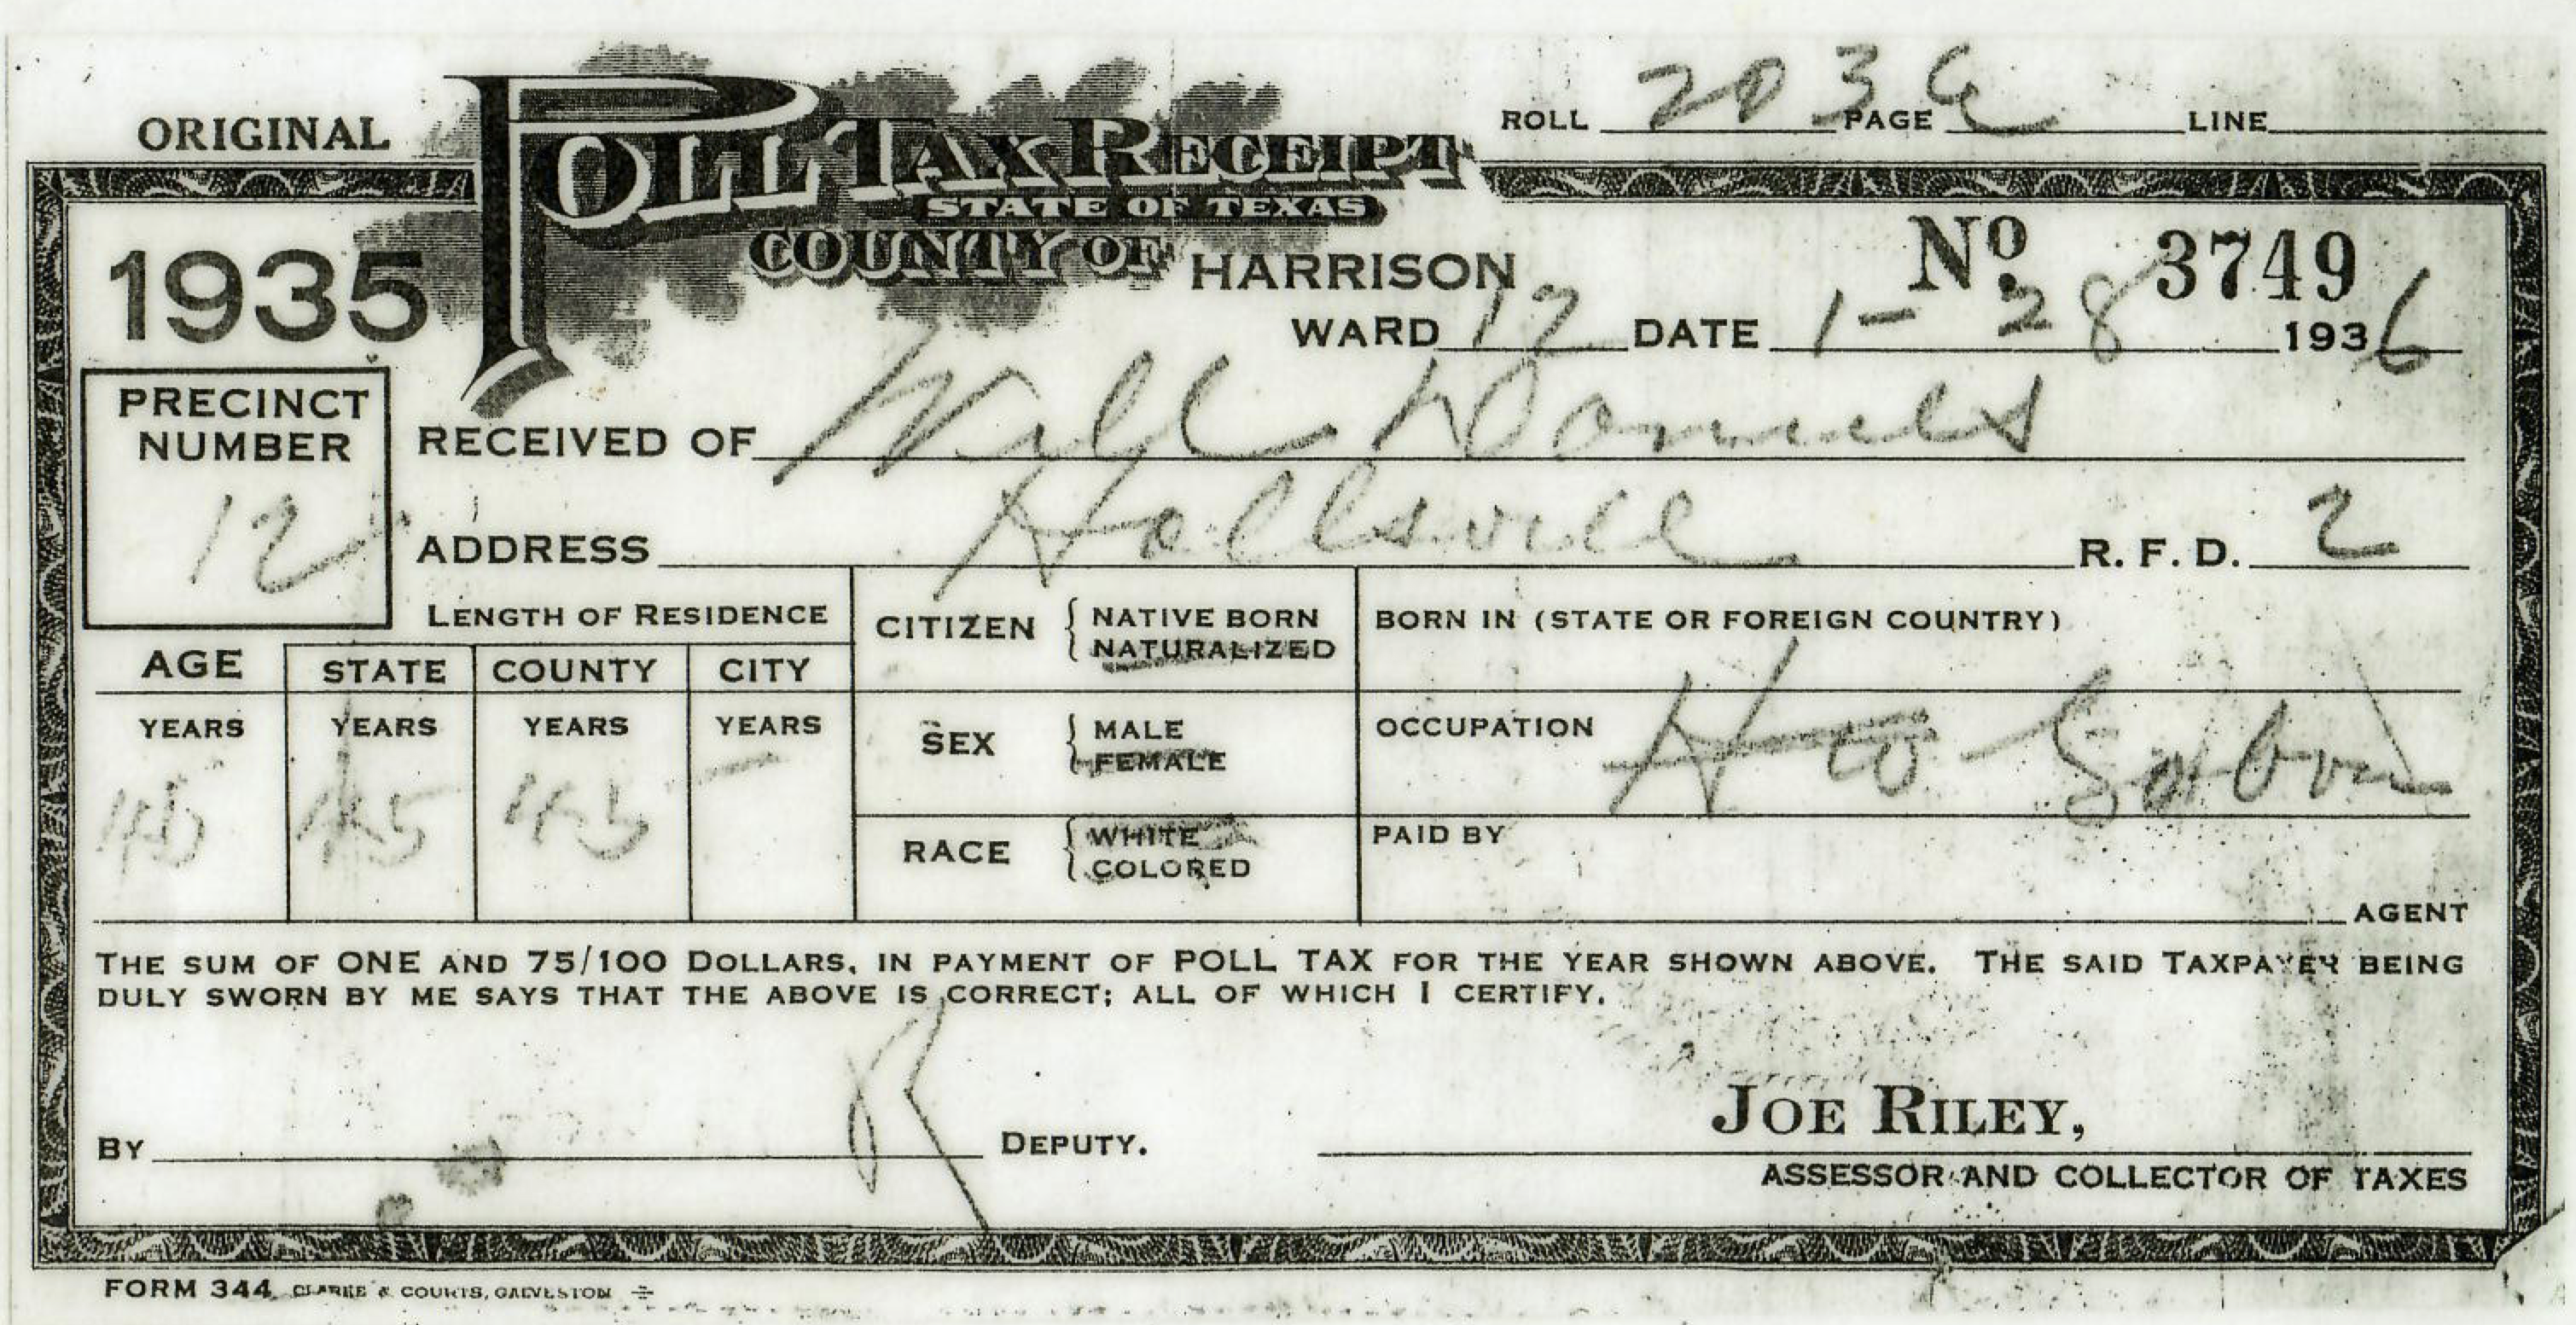 ORIGINAL
POLL TAX RECEIPT
ROLL PAGE LINE
STATE OF TEXAS
1935
COUNTY OF HARRISON
No. 3749
WARD 12 DATE 1-28 1936
PRECINCT
NUMBER
12
RECEIVED OF Will Daniels
ADDRESS Hallsvill R. F. D. 2
LENGTH OF RESIDENCE
AGE STATE COUNTY CITY
YEARS YEARS YEARS YEARS
45 45 45 —
CITIZEN { NATIVE BORN
NATURALIZED
BORN IN (STATE OR FOREIGN COUNTRY)
SEX { MALE
FEMALE
OCCUPATION
RACE { WHITE
COLORED
PAID BY
AGENT
THE SUM OF ONE AND 75/100 DOLLARS, IN PAYMENT OF POLL TAX FOR THE YEAR SHOWN ABOVE. THE SAID TAXPAYER BEING
DULY SWORN BY ME SAYS THAT THE ABOVE IS CORRECT; ALL OF WHICH I CERTIFY.
JOE RILEY,
BY DEPUTY.
ASSESSOR AND COLLECTOR OF TAXES
FORM 344 CLARKE & COURTS, GALVESTON